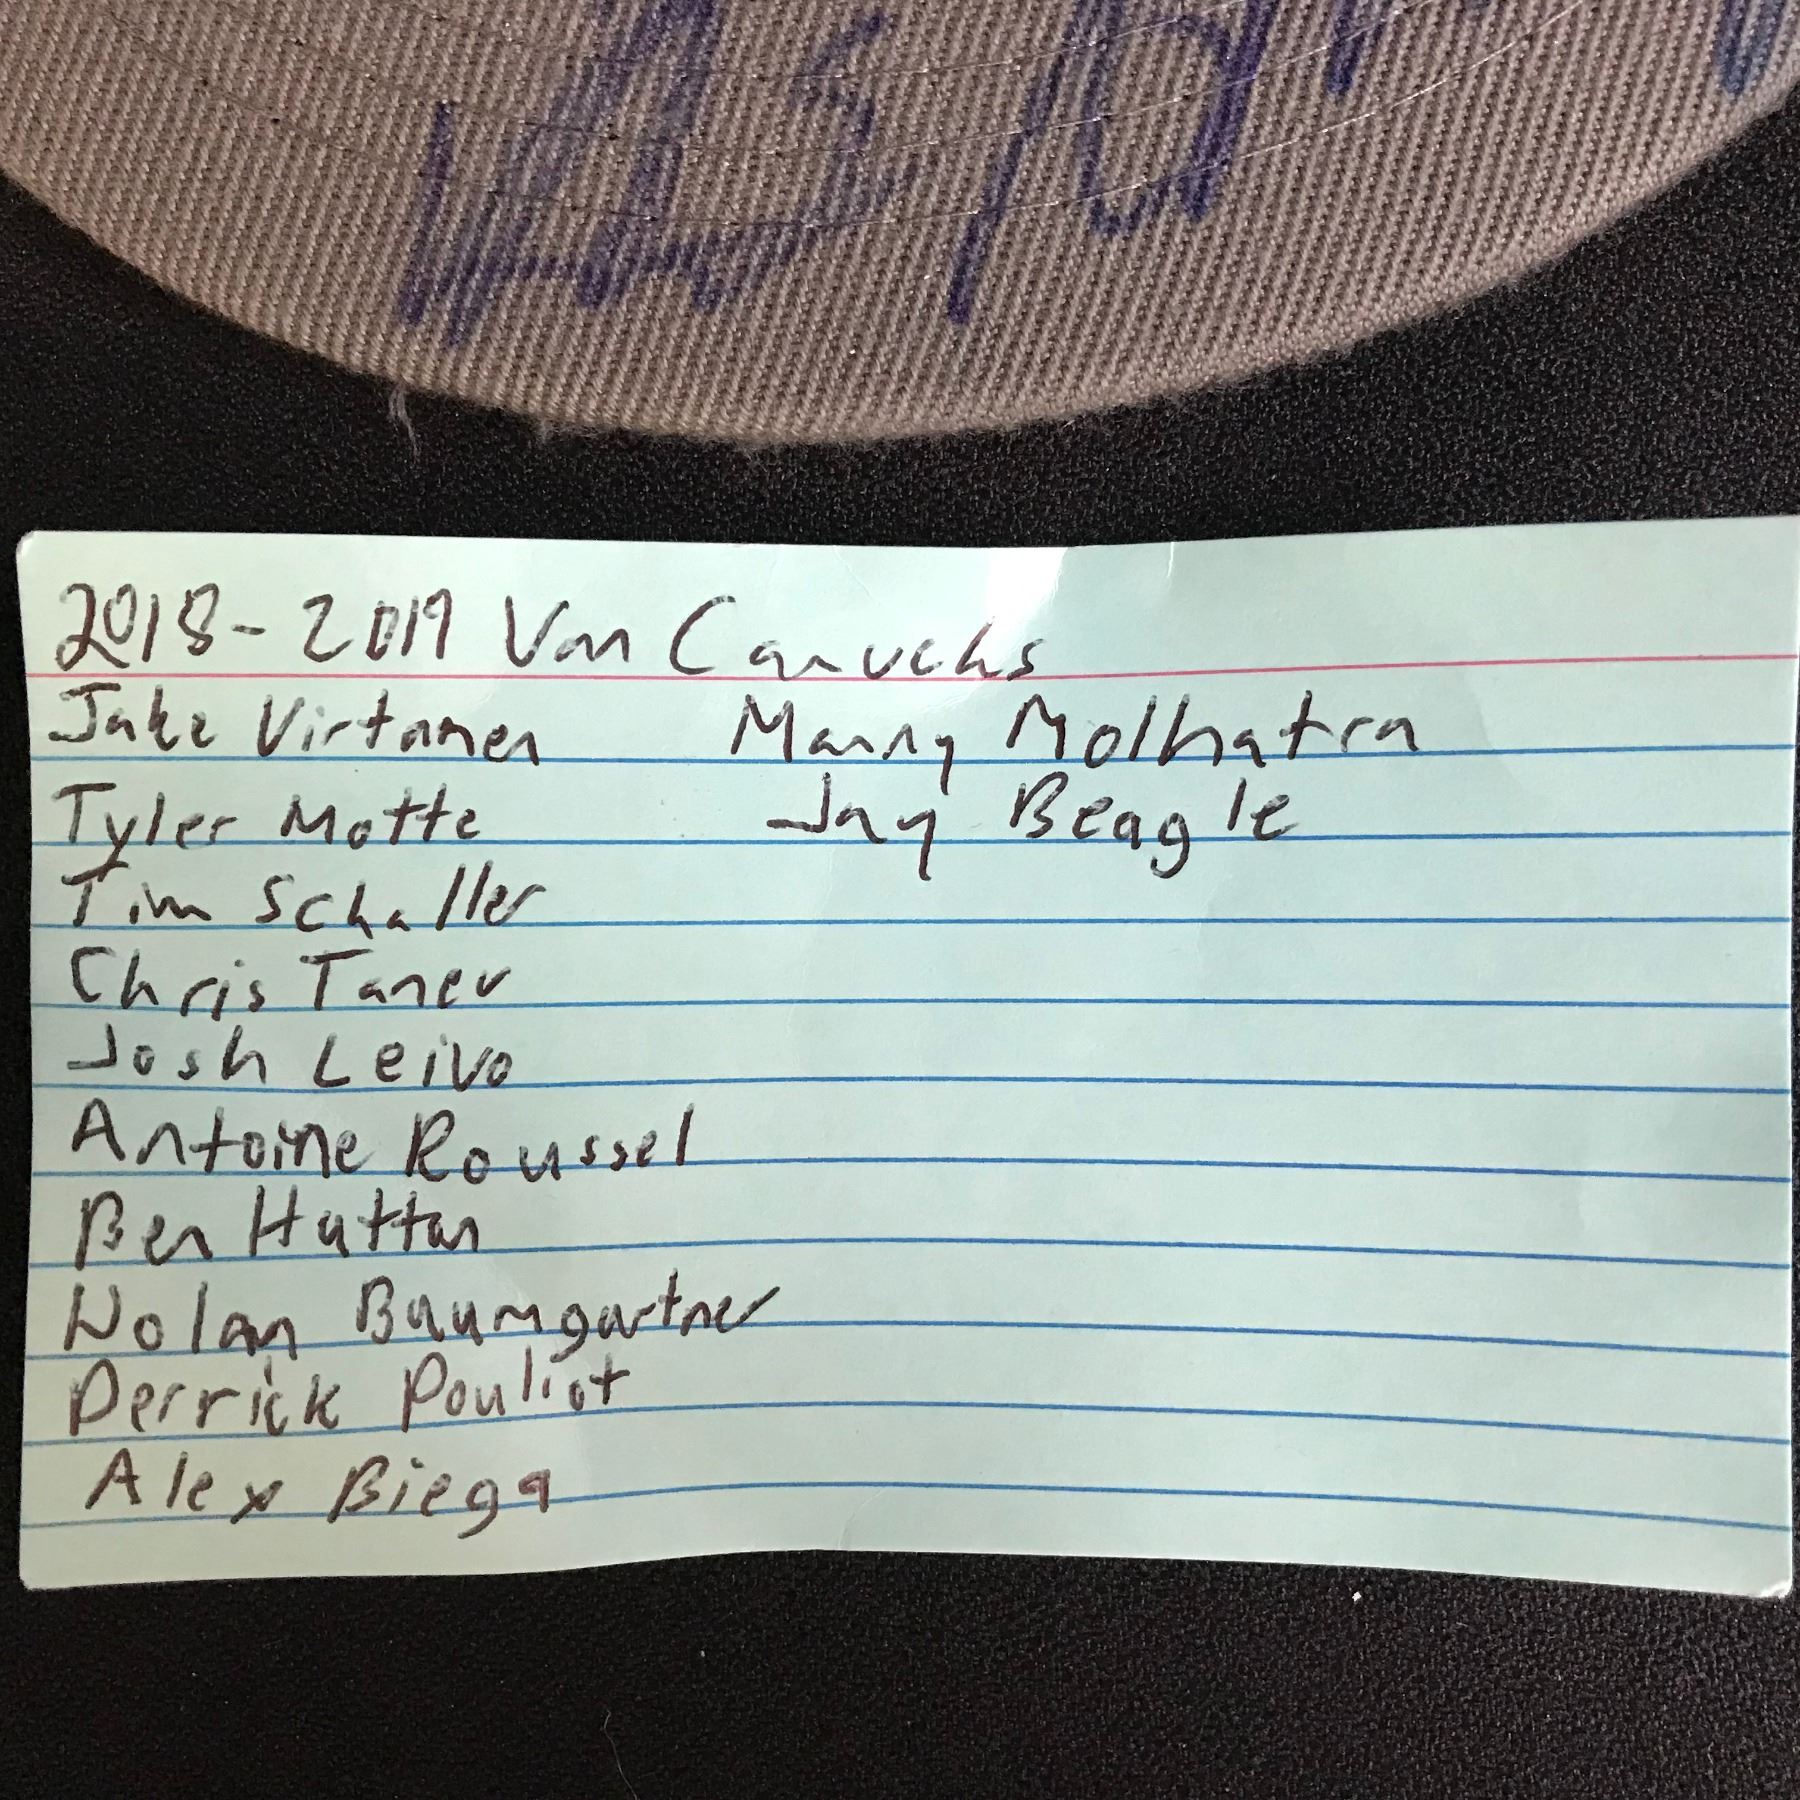 2018-2019 Van Canucks
Jake Virtanen
Tyler Motte
Tim Schaller
Chris Tanev
Josh Leivo
Antoine Roussel
Ben Hutton
Nolan Baumgartner
Derrick Pouliot
Alex Biega
Manny Molhatra
Jay Beagle